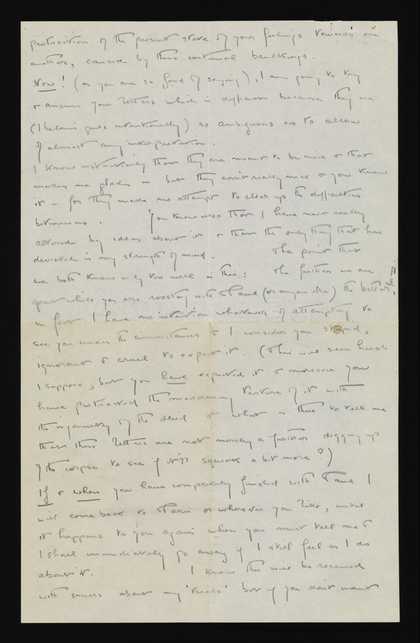 protraction of the present state of your feelings towards one
another, caused by these continual bendings.
Now! (as you are so fond of saying), I am going to try
& answer your letters which is difficult because they are
(I believe quite intentionally) so ambiguous as to allow
of almost any interpretation.
I know instinctively that they are meant to be nice & that
makes me glad - but they aren't really nice & you know
it - for they make no attempt to clear up the difficulties
between us. You know also that I have never really
altered my ideas about it & that the only thing that has
deviated is my strength of mind. The point that
we both know only too well is this: the further we are
apart while you are with (or anyone else) the better,
in fact I have no intention whatsoever of attempting to
see you under the circumstances & I consider you
ignorant & cruel to expect it. (This will seem harsh
I suppose, but you have expected it & moreover you
have protracted the torture of it with
the of the dead & what is there to tell me
that these letters are not merely a further digging up
of the corpse to see if it'll squeak a bit more?)
If & when you have completely finished with I
will come back to or wherever you like, until
it happens to you again when you must tell me &
I shall immediately go away if I still feel as I do
about it. I know this will be received
with about my 'rules' but if you don't want